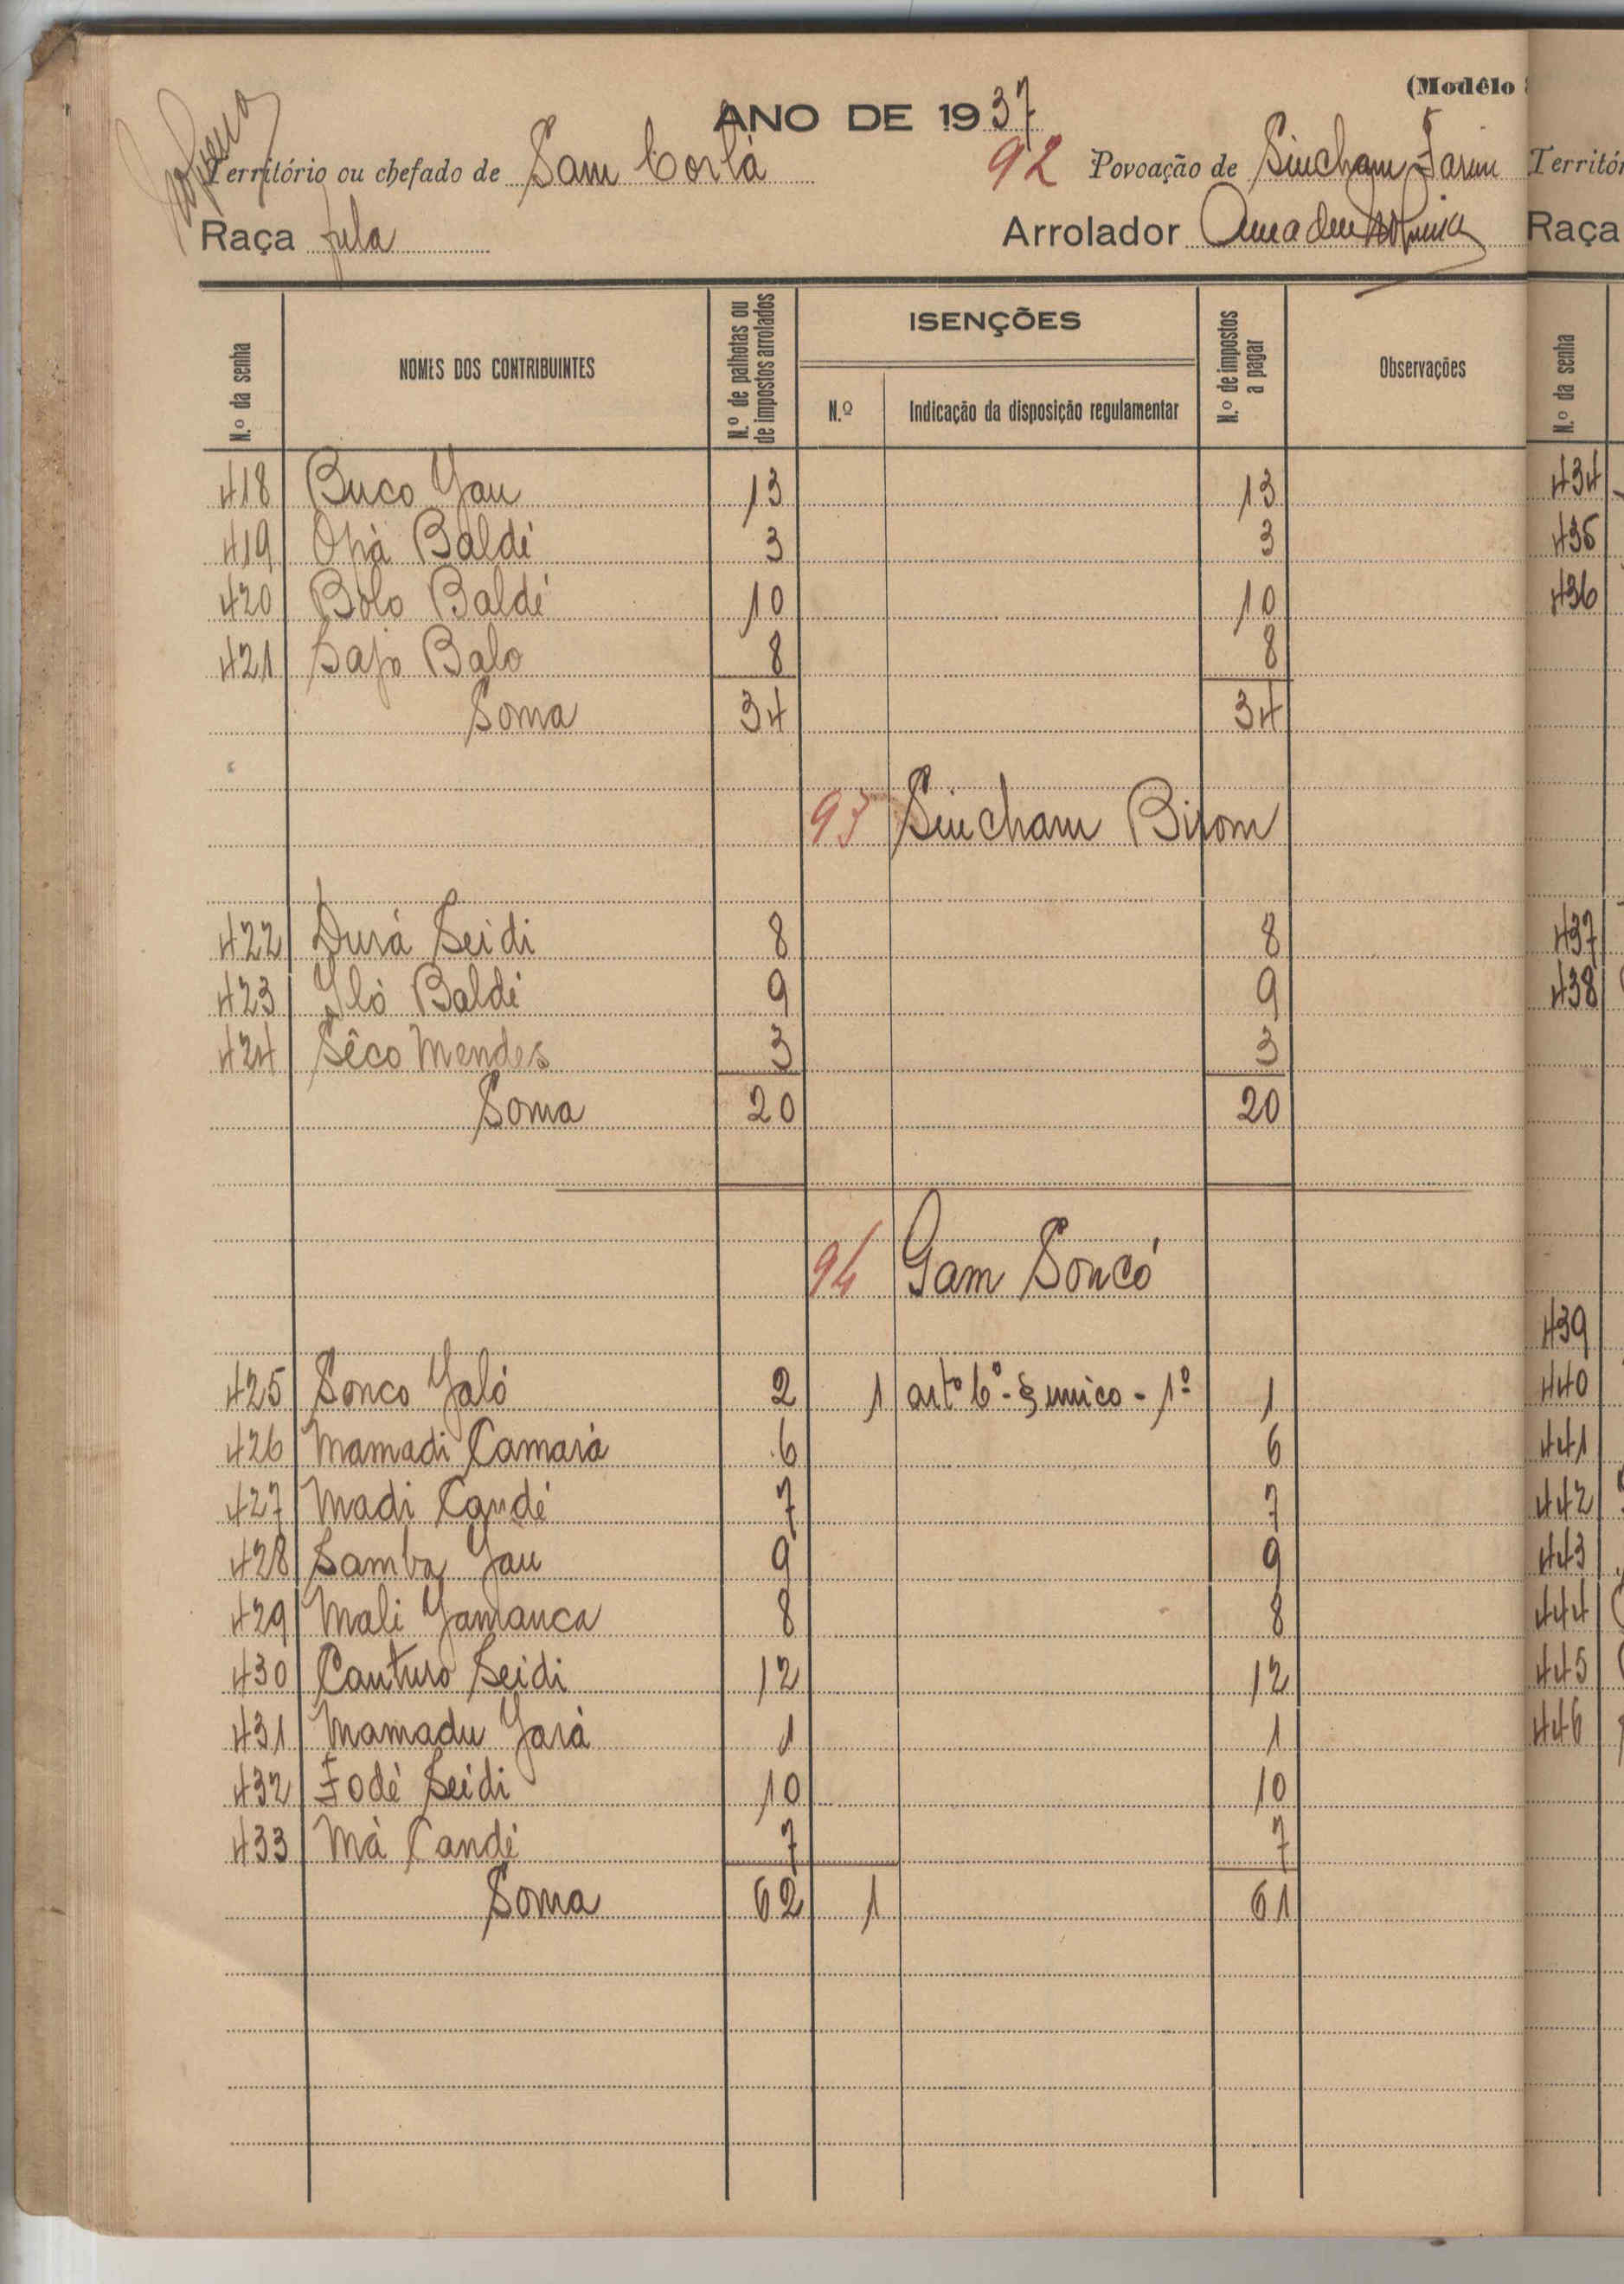 (Modêlo
ANO DE 1937
Território ou chefado de Sam Corlà 92 Povoação de Sincham Farim
Raça fula Arrolador Amadeu
N.º da senha NOMES DOS CONTRIBUINTES N.º de palhotas ou de impostos arrolados ISENÇÕES N.º Indicação da disposição regulamentar N.º de impostos a pagar Observações
418 Buco Jau 13 13
419 Opà Baldé 3 3
420 Bólo Baldé 10 10
421 Sajo Balo 8 8
Soma 34 34
93 Sincham Birom
422 Durá Seidi 8 8
423 Yló Baldé 9 9
424 Sêco Mendes 3 3
Soma 20 20
94 Gam Soncó
425 Sonco Jaló 2 1 artº 6º - § unico - 1º 1
426 Mamadi Camarà 6 6
427 Madi Candé 7 7
428 Samba Jau 9 9
429 Mali Jamanca 8 8
430 Canturo Seidi 12 12
431 Mamadu Jarà 1 1
432 Fodé Seidi 10 10
433 Mà Candé 7 7
Soma 62 1 61
Territó
Raça
N.º da senha
434
435
436
437
438
439
440
441
442
443
444
445
446